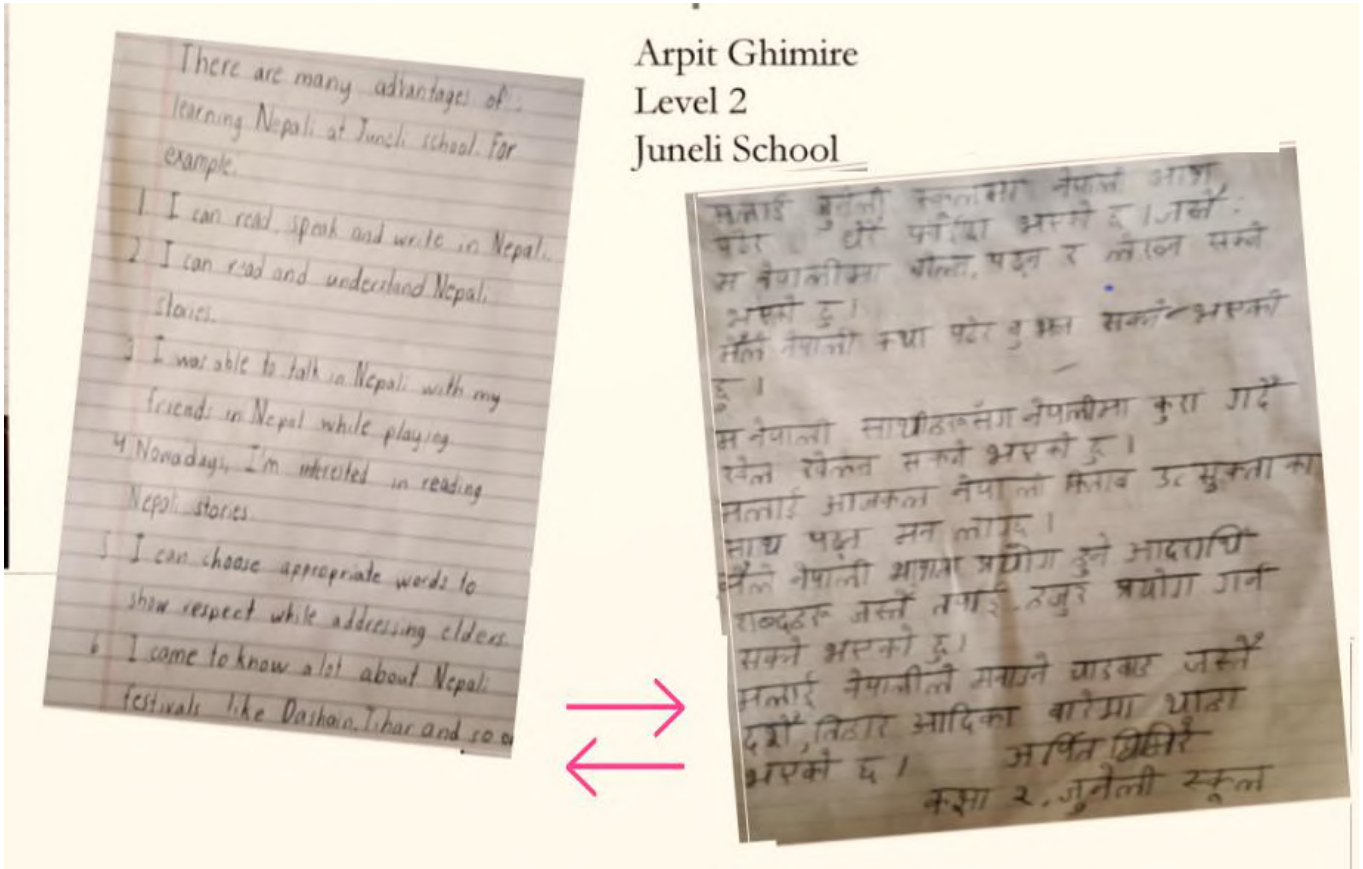 Arpit Ghimire
Level 2
Juneli School
There are many advantages of
learning Nepali at Juneli school. For
example.
1 I can read, speak and write in Nepali.
2 I can read and understand Nepali
stories.
3 I was able to talk in Nepali with my
friends in Nepal while playing
4 Nowadays, I'm interested in reading
Nepali stories.
5 I can choose appropriate words to
show respect while addressing elders.
6 I came to know a lot about Nepali
festivals like Dashain, Tihar and so o
मलाई जुनेली स्कूलमा नेपाली भाषा
पढेर धेरै फाईदा भएको छ । जस्तै :
म नेपालीमा बोल्न, पढ्न र लेख्न सक्ने
भएको छु ।
मैले नेपाली कथा पढेर बुझ्न सक्ने भएको
छु ।
म नेपाली साथीहरूसंग नेपालीमा कुरा गर्दै
खेल खेल्न सक्ने भएको छु ।
मलाई आजकल नेपाली किताब उत्सुकताका
साथ पढ्न मन लाग्छ ।
मैले नेपाली भाषामा प्रयोग हुने आदरार्थि
शब्दहरू जस्तै तपाई, हजुर प्रयोग गर्न
सक्ने भएको छु ।
मलाई नेपालीले मनाउने चाडबाड जस्तै
दशै, तिहार आदिका बारेमा थाहा
भएको छ । अर्पित घिमिरे
कक्षा २, जुनेली स्कूल